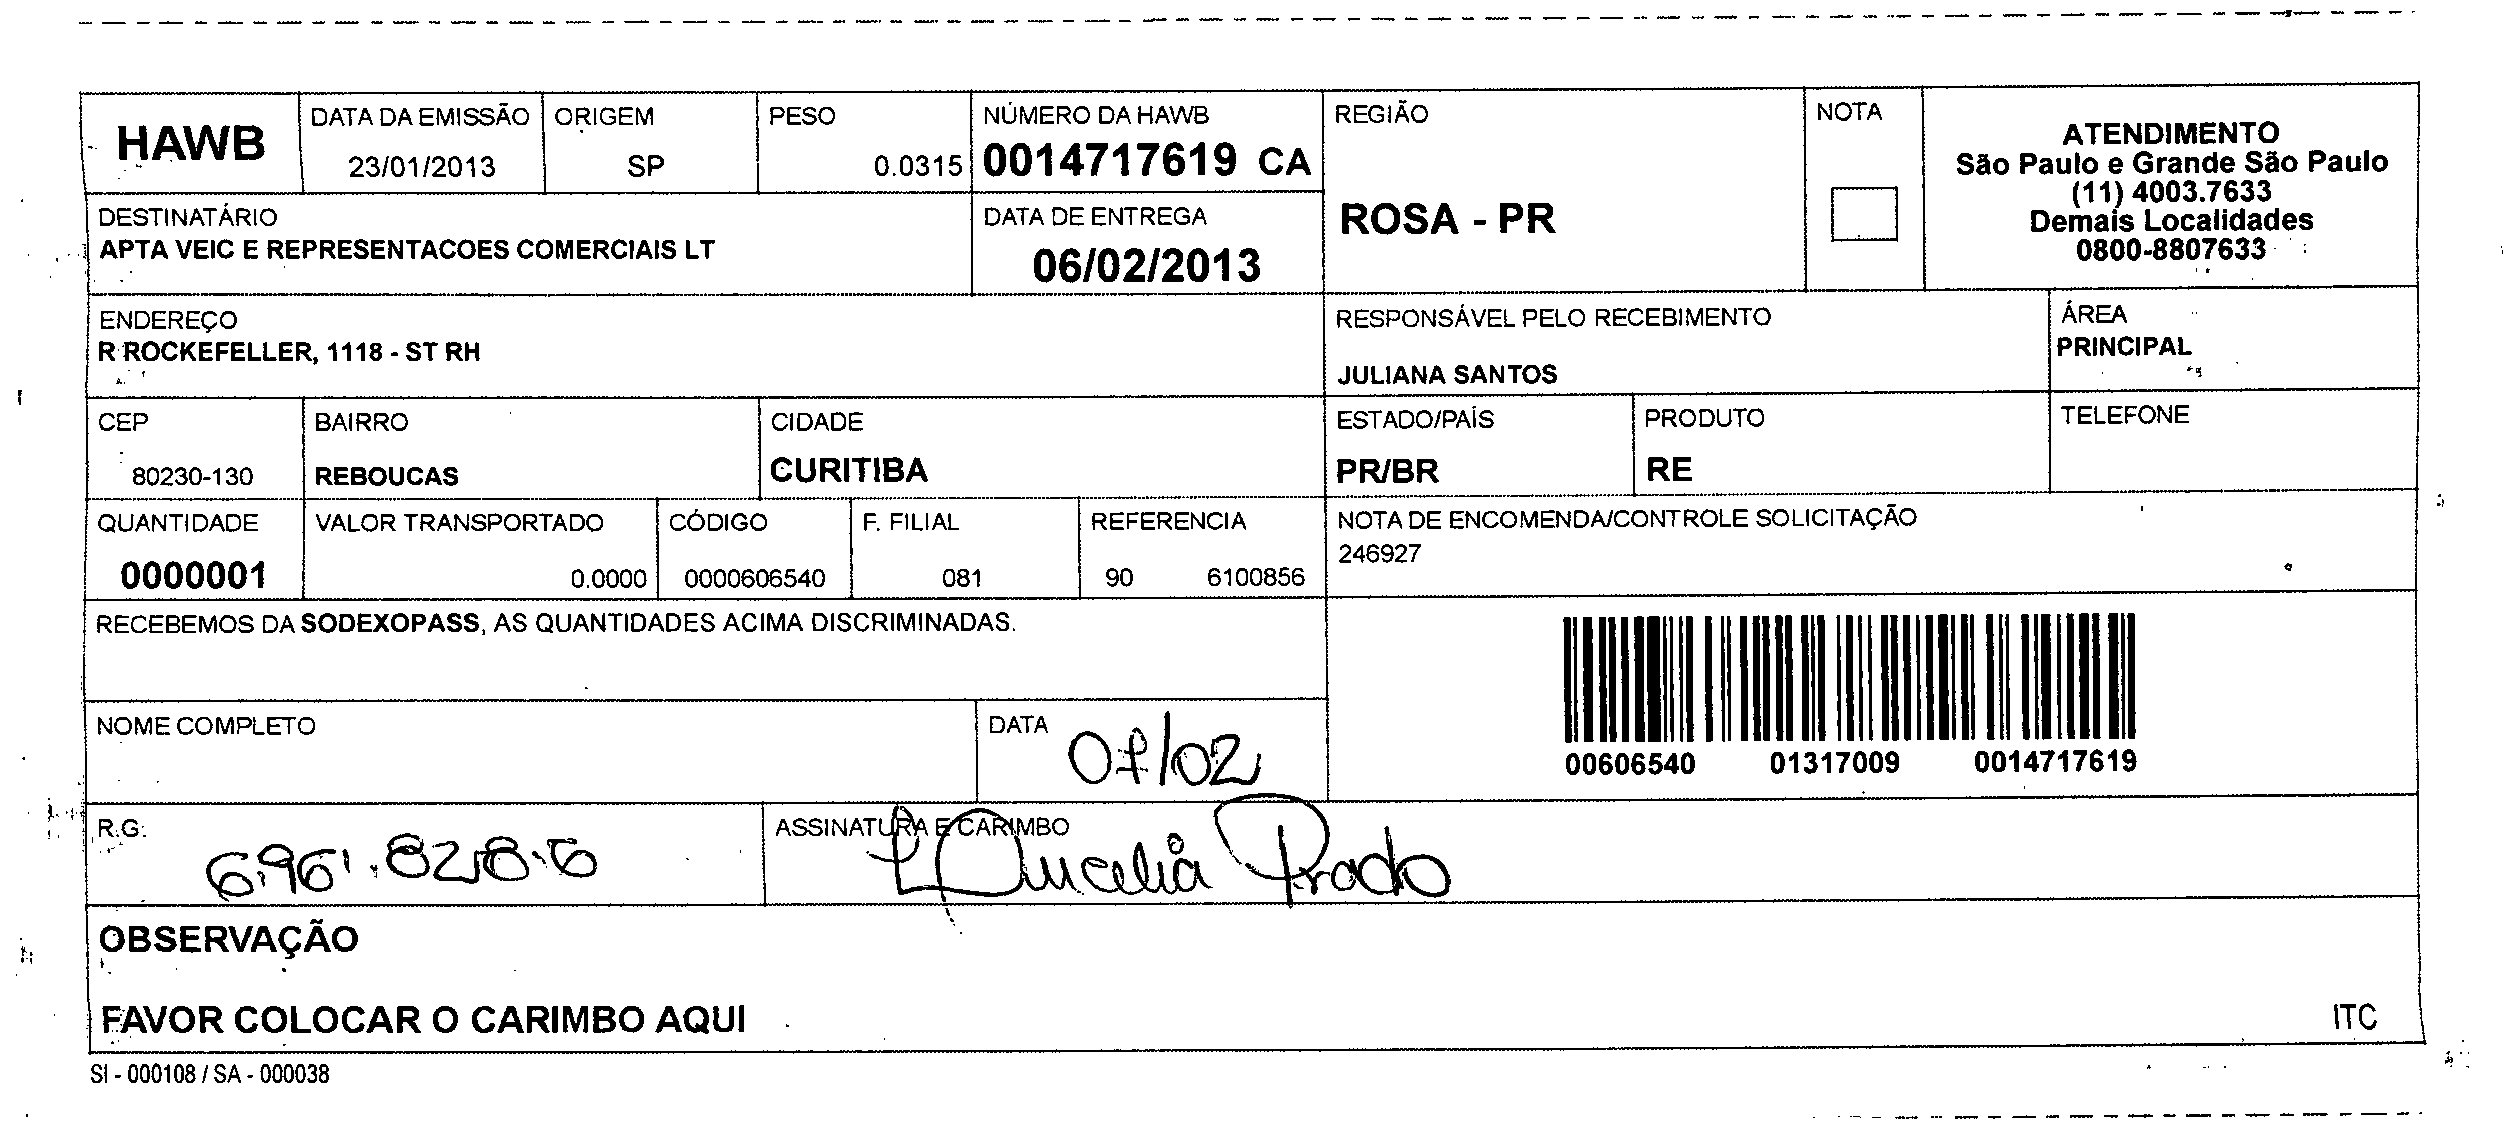 HAWB
DATA DA EMISSÃO
23/01/2013
ORIGEM
SP
PESO
0.0315
NÚMERO DA HAWB
0014717619 CA
REGIÃO
ROSA - PR
NOTA
ATENDIMENTO
São Paulo e Grande São Paulo
(11) 4003.7633
Demais Localidades
0800-8807633
DESTINATÁRIO
APTA VEIC E REPRESENTACOES COMERCIAIS LT
DATA DE ENTREGA
06/02/2013
ENDEREÇO
R ROCKEFELLER, 1118 - ST RH
RESPONSÁVEL PELO RECEBIMENTO
JULIANA SANTOS
ÁREA
PRINCIPAL
CEP
80230-130
BAIRRO
REBOUCAS
CIDADE
CURITIBA
ESTADO/PAÍS
PR/BR
PRODUTO
RE
TELEFONE
QUANTIDADE
0000001
VALOR TRANSPORTADO
0.0000
CÓDIGO
0000606540
F. FILIAL
081
REFERENCIA
90 6100856
NOTA DE ENCOMENDA/CONTROLE SOLICITAÇÃO
246927
RECEBEMOS DA SODEXOPASS, AS QUANTIDADES ACIMA DISCRIMINADAS.
00606540 01317009 0014717619
NOME COMPLETO
DATA
07/02
R.G.
ASSINATURA E CARIMBO
Prado
OBSERVAÇÃO
FAVOR COLOCAR O CARIMBO AQUI
ITC
SI - 000108 / SA - 000038